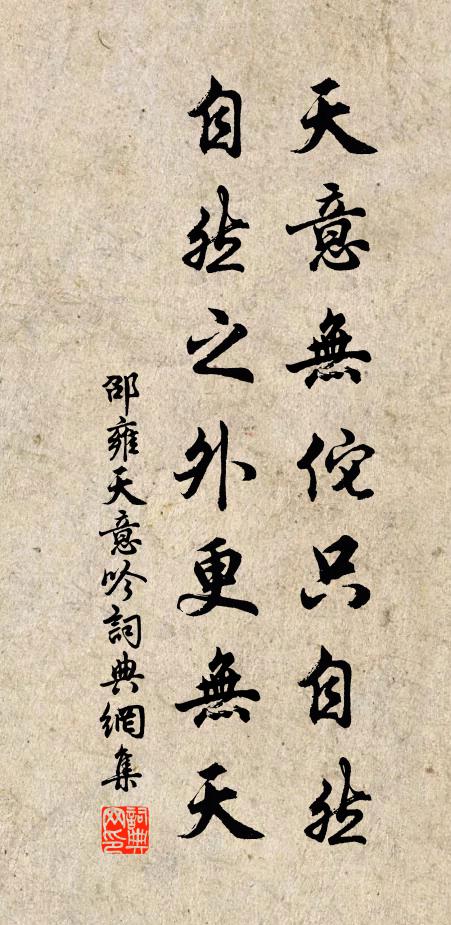 天意無佗只自然
自然之外更無天
邵雍天意吟詞典網集
詞典網印